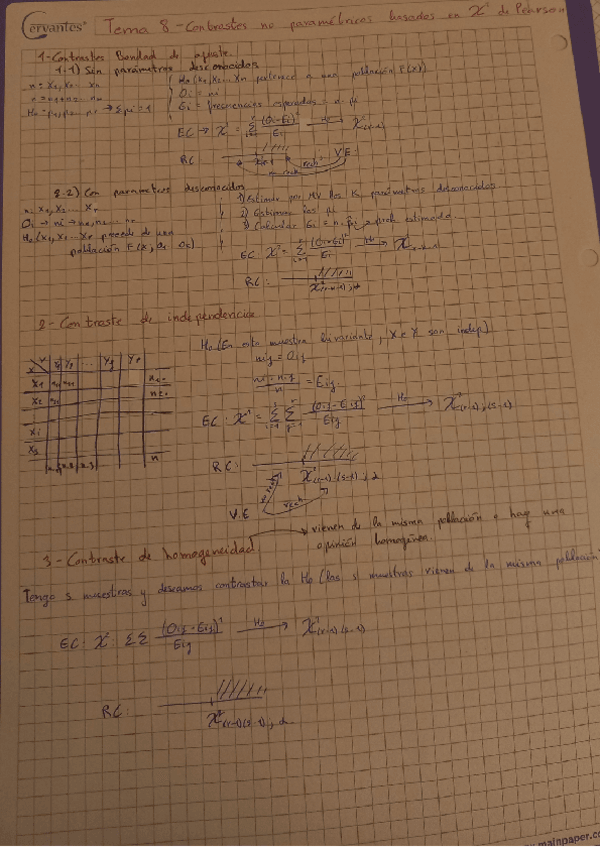 Cervantes
Tema 8 - Contrastes no paramétricos basados en χ² de Pearson
1- Contrastes Bondad de ajuste
1.1) Sin parámetros desconocidos
n = x₁, x₂ ... xₙ
H₀ (x₁, x₂ ... xₙ pertenece a una población F(x))
Oᵢ = nᵢ
Eᵢ = frecuencias esperadas = n·pᵢ
EC → χ² = Σ (Oᵢ-Eᵢ)²/Eᵢ —H₀→ χ²(r-1)
RC
V.E
2.2) Con parámetros desconocidos
n: x₁, x₂ ... xₙ
Oᵢ → nᵢ → n₁, n₂ ... nᵣ
H₀ (x₁, x₂ ... xₙ procede de una
población F(x, θ₁ θₖ)
1) Estimar por MV los K parámetros desconocidos
2) Estimamos los pᵢ
3) Calcular Eᵢ = n·p̂ᵢ → prob estimada
EC χ² = Σ (Oᵢ-Eᵢ)²/Eᵢ —H₀→ χ²
RC:
2- Contraste de independencia
H₀ (En esta muestra bivariante, X e Y son indep.)
nij = Oij
ni· n·j / n = Eij
X Y y₁ y₂ ... yj yr
x₁
x₂
xi
xs
n
EC: χ² = Σ Σ (Oij - Eij)²/Eij —H₀→ χ²(r-1)·(s-1)
RC: χ²(r-1)·(s-1), α
V.E
rech
3- Contraste de homogeneidad → vienen de la misma población o hay una
opinión homogénea.
Tengo s muestras y deseamos contrastar la H₀ (las s muestras vienen de la misma población)
EC: χ²: ΣΣ (Oij - Eij)²/Eij —H₀→ χ²(r-1)(s-1)
RC: χ²(r-1)(s-1), α
mainpaper.co